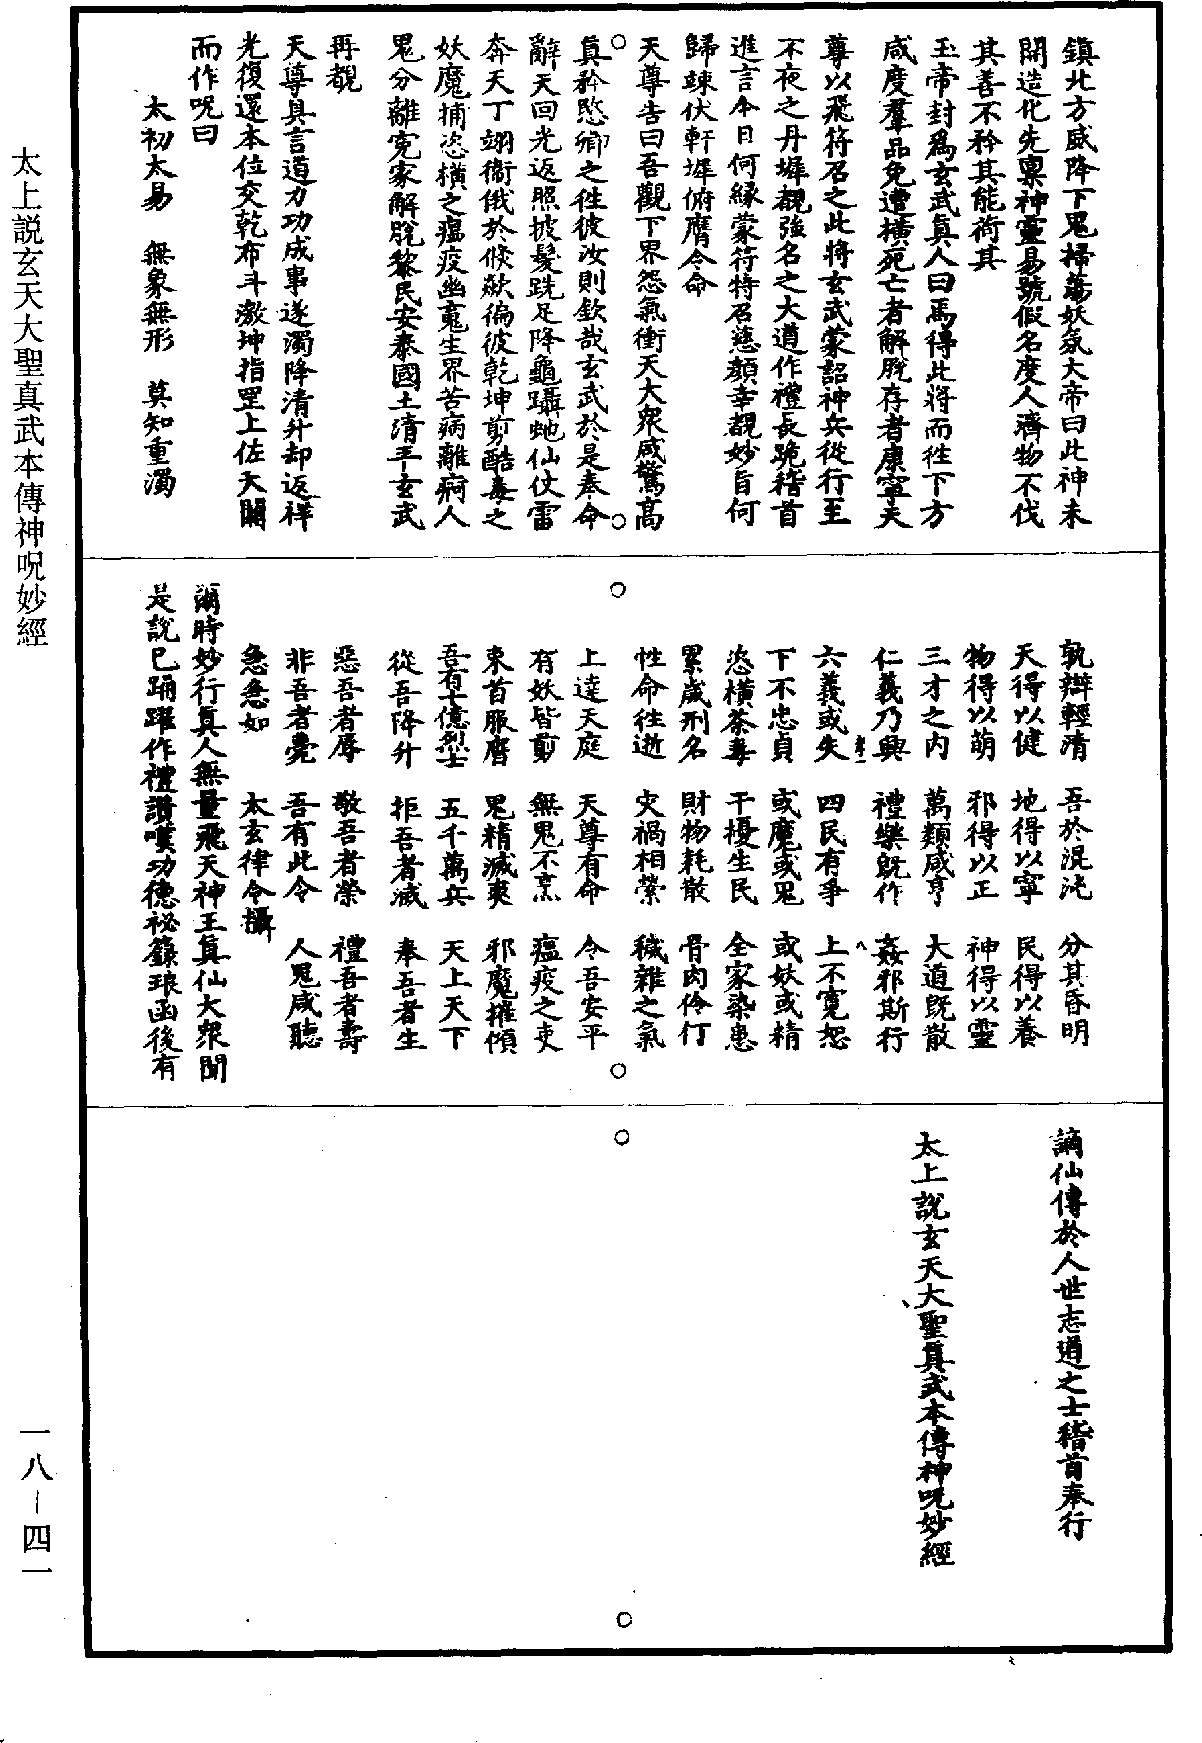 鎮北方威降下鬼掃蕩妖氛大帝曰此神未
開造化先稟神靈易號假名度人濟物不伐
其善不矜其能荷其
玉帝封爲玄武真人曰焉得此將而往下方
咸度羣品免遭橫死亡者解脫存者康寧天
尊以飛符召之此將玄武蒙詔神兵從行至
不夜之丹墀覩強名之大道作禮長跪稽首
進言今日何緣蒙符特召慈顏幸覩妙旨何
歸竦伏軒墀俯膺令命
天尊告曰吾觀下界怨氣衝天大衆咸驚高
真矜愍卿之往彼汝則欽哉玄武於是奉命
辭天回光返照披髮跣足降龜躡虵仙仗雷
奔天丁翊衞俄於倏歘徧彼乾坤剪酷毒之
妖魔捕恣橫之瘟疫幽寃生界苦病離痾人
鬼分離寃家解脫黎民安泰國土清平玄武
再覩
天尊具言道力功成事遂濁降清升却返祥
光復還本位交乾布斗激坤指罡上佐天關
而作呪曰
太初太易　無象無形　莫知重濁
孰辯輕清　吾於混沌　分其昏明
天得以健　地得以寧　民得以養
物得以萌　邪得以正　神得以靈
三才之內　萬類咸亨　大道既散
仁義乃興　禮樂既作　姦邪斯行
六義或失　四民有爭　上不寬恕
下不忠貞　或魔或鬼　或妖或精
恣橫荼毒　干擾生民　全家染患
累歲刑名　財物耗散　骨肉伶仃
性命往逝　灾禍相縈　穢雜之氣
上達天庭　天尊有命　令吾安平
有妖皆剪　無鬼不烹　瘟疫之吏
束首服膺　鬼精滅爽　邪魔摧傾
吾有十億烈士　五千萬兵　天上天下
從吾降升　拒吾者滅　奉吾者生
惡吾者辱　敬吾者榮　禮吾者壽
非吾者薨　吾有此令　人鬼咸聽
急急如　太玄律令攝
爾時妙行真人無量飛天神王真仙大衆聞
是說已踊躍作禮讚嘆功德祕籙琅函後有
謫仙傳於人世志道之士稽首奉行
太上說玄天大聖真武本傳神呪妙經
太上説玄天大聖真武本傳神呪妙經
一八－四一